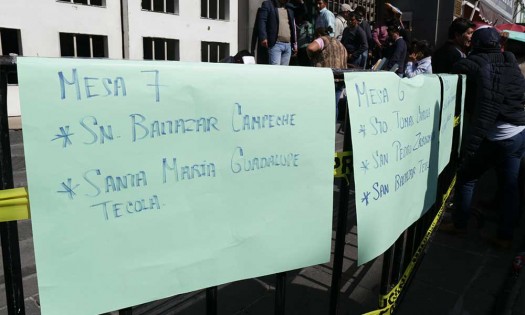 MESA 7
* SN. BALTAZAR CAMPECHE
* SANTA MARÍA GUADALUPE
TECOLA.
MESA 6
* STO TOMAS
* SAN PEDRO
* SAN BALTAZAR